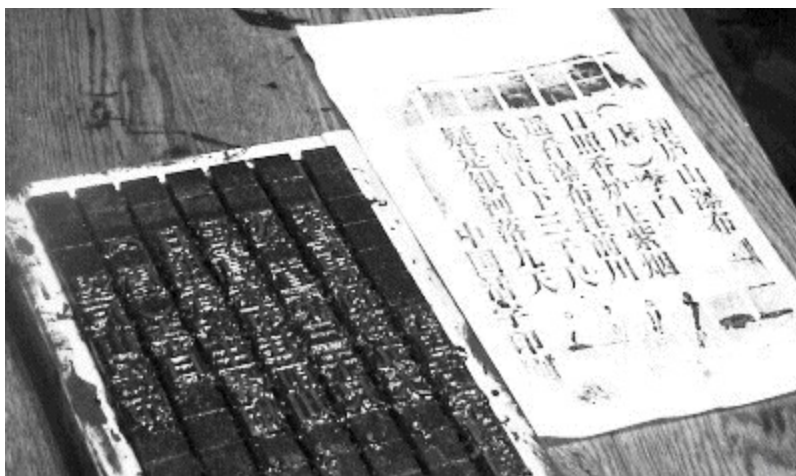 望庐山瀑布
（唐）李白
日照香炉生紫烟
遥看瀑布挂前川
飞流直下三千尺
疑是银河落九天
中国活字印